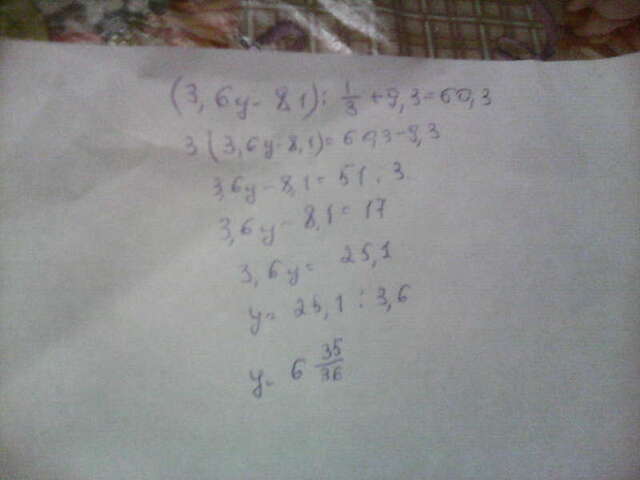 (3,6y - 8,1) : 1/3 + 9,3 = 60,3
3(3,6y - 8,1) = 60,3 - 9,3
3,6y - 8,1 = 51 : 3
3,6y - 8,1 = 17
3,6y = 25,1
y = 25,1 : 3,6
y = 6 35/36